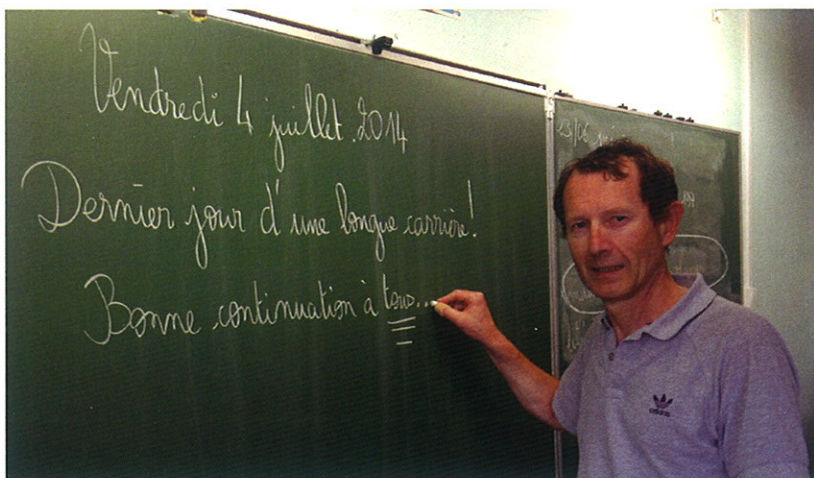 Vendredi 4 juillet 2014
Dernier jour d'une longue carrière!
Bonne continuation à tous...
23/06
adidas